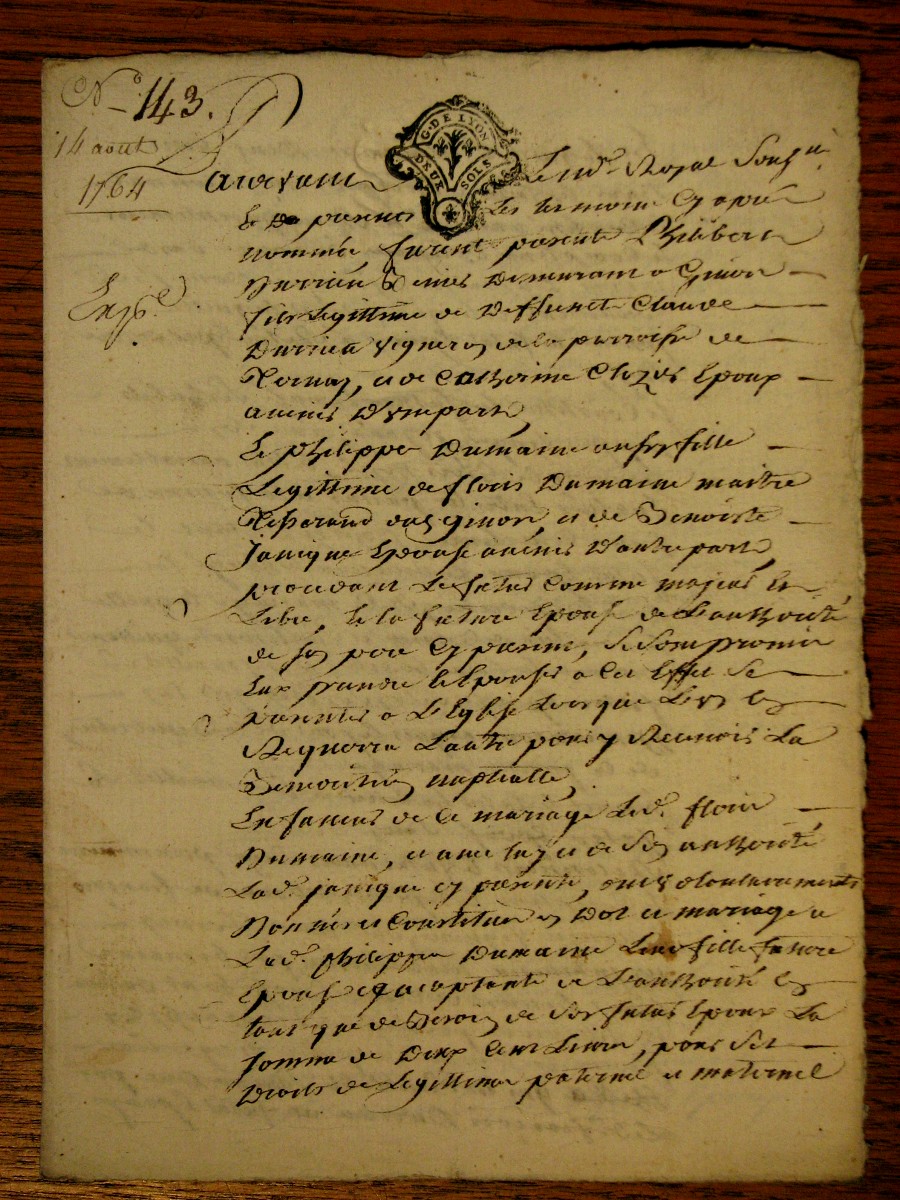 N° 143.
14 août
1764
Exp.e
G. DE LYON
DEUX SOLS
Pardevant Le no.re Royal Souss.é
Et En presence Des temoins Cy apres
nommés furent presents Philibert
Durrieu
fils Legittime de Deffunct Claude
Durrieu vigneron de la parroisse de
et de Catherine Epoux
a venir D'une part,
Et Philippe Dumaine aussy fille
Legittime de floris Dumaine maitre
Tisserand aud. et de Benoiste
Janique Epouse a venir D'autre part,
procedant Le futur Comme majeur Et
Libre, Et la future Epouse de L'authorité
de son pere Cy present, se sont promis
Eux prendre Et Epouser a Cet Effet se
presenter a L'Eglise Lorsque L'un En
Requerra L'autre pour y Recevoir La
Benediction nuptialle,
En faveur de Ce mariage Led. floris
Dumaine, et avec luy et de Son authorité
Lad. janique Cy presente, ont Solidairement
Donnés et Constitués En Dot et mariage a
Lad. philippe Dumaine Leur fille future
Epouse Et acceptante de L'authorité En
tant que de Besoin de Son futur Epoux La
Somme de Deux Cent Livres, pour Ses
Droits de Legittime paternel et maternel